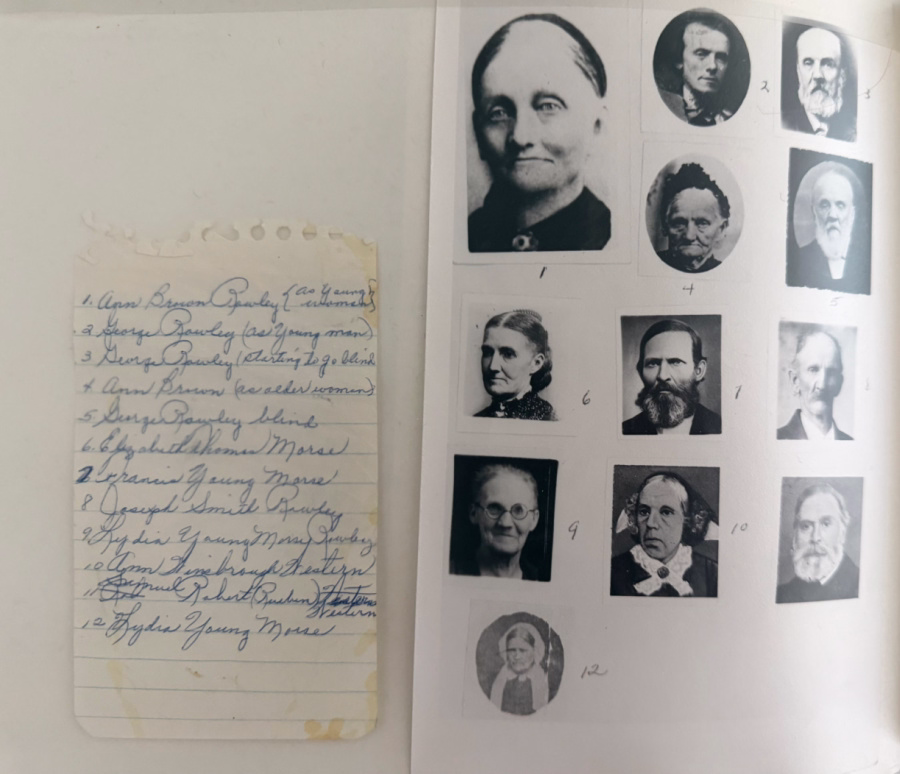 1. Ann Brown Rowley (as Young woman)
2 George Rowley (as Young man)
3 George Rowley (starting to go blind
4 Ann Brown (as older women)
5 George Rowley blind
6. Elizabeth Thomas Morse
7 Francis Young Morse
8 Joseph Smith Rowley
9 Lydia Young Morse Rowley
10 Ann Winsbrough Western
11 Samuel Robert (Rueben) Western
12 Lydia Young Morse
2
3
1
4
5
6
7
9
10
12